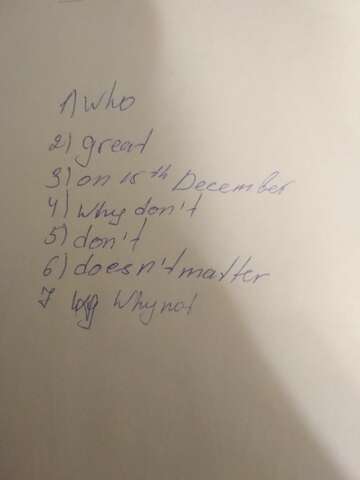 1) who
2) great
3) on 15th December
4) why don't
5) don't
6) doesn't matter
7 Why not